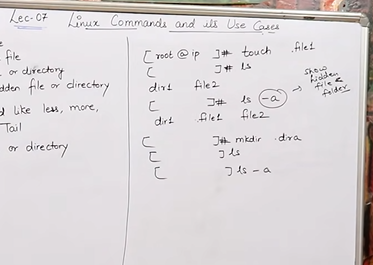 Lec-07 Linux Commands and its Use Cases
e
file
or directory
dden file or directory
d like less, more,
Tail
or directory
[root @ ip ]# touch .file1
[ ]# ls
dir1 file2
[ ]# ls -a → show hidden file & folder
dir1 .file1 file2
[ ]# mkdir .dira
[ ] ls
[ ] ls -a